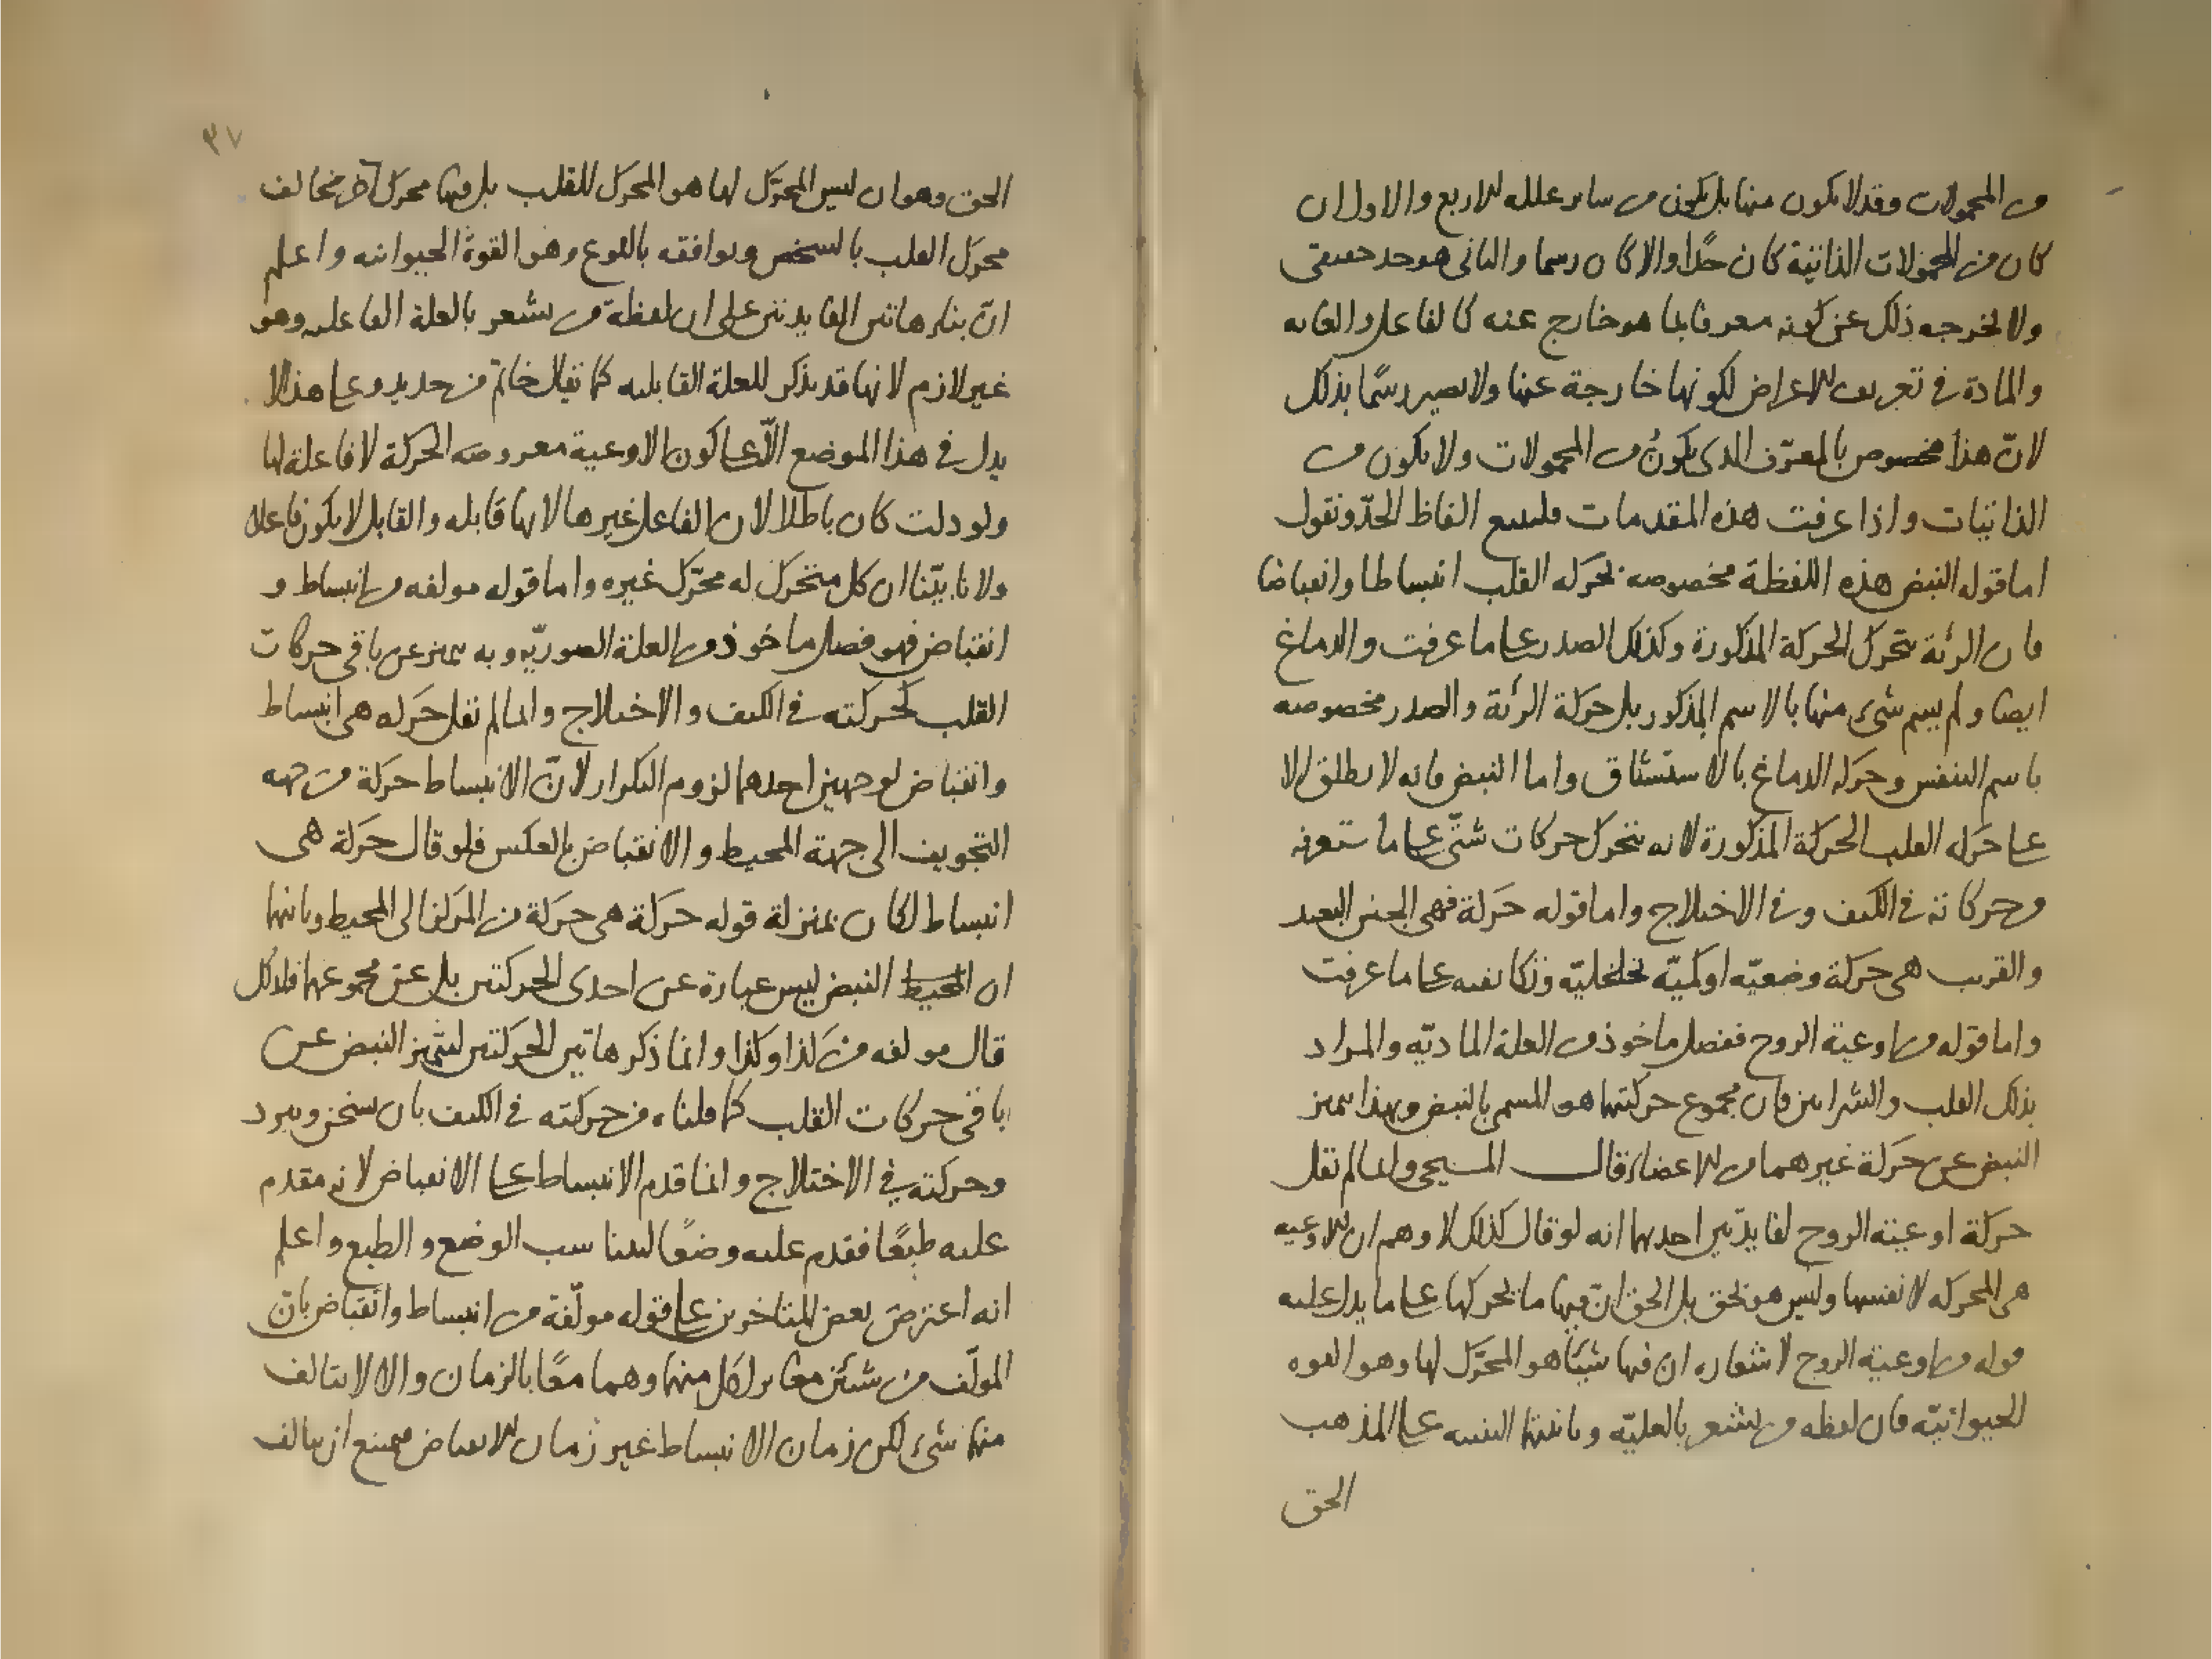 من المحمولات وقد لا يكون منها بل يكون من ساير علله الاربع والاول ان
كان من المحمولات الذاتية كان حدًا والا كان رسما والثانى هو حد حقيقى
ولا يخرجه ذلك عن كونه معرفا بما هو خارج عنه كالفاعل والغايه
والمادة فى تعريف الاعراض لكونها خارجة عنها ولا يصير رسمًا بذلك
لانّ هذا مخصوص بالمعرّف الذى يكونُ من المحمولات ولا يكون من
الذاتيات واذا عرفت هذه المقدمات فلنتبع الفاظ الحدّ ونقول
اما قوله النبض هذه اللفظة مخصوصه بحركه القلب انبساطا وانقباضا
فان الرئة تتحرك الحركة المذكورة وكذلك الصدر على ما عرفت والدماغ
ايضا ولم يسم شىء منها بالاسم المذكور بل حركة الرئة والصدر مخصوصه
باسم التنفس وحركه الدماغ بالاستنشاق واما النبض فانه لا يطلق الا
على حركه القلب الحركة المذكورة لانه يتحرك حركات شتّى على ما ستعرفه
وحركاته فى الكيف وفى الاختلاج واما قوله حركة فهى الجنس البعيد
والقريب هى حركة وضعيّه او كميّه تخلخليّه وتكاثفيه على ما عرفت
واما قوله من اوعية الروح ففصل ماخوذ من العلة الماديّه والمراد
بذلك القلب والشرايين فان مجموع حركتهما هو المسمى بالنبض وبهذا يميز
النبض عن حركة غيرهما من الاعضاء قال المسيحى وانما لم تقل
حركة اوعية الروح لفايدتين احديهما انه لو قال كذلك لاوهم ان الاوعيه
هى المحركه لانفسها وليس هو بحق بل الحق ان فيها ما يحركها على ما يدل عليه
قوله من اوعية الروح لاشعاره ان فيها شيئًا هو المحرّك لها وهو القوه
الحيوانيّه فان لفظه من يشعر بالعليّه وثانيتهما التنبيه على المذهب
الحق
٣٧
الحق وهو ان ليس المحرّك لها هو المحرك للقلب بل فيها محرك آخر مخالف
محرك القلب بالشخص ويوافقه بالنوع وهو القوة الحيوانيه واعلم
انّ بناء هاتين الفايدتين على ان لفظة من يشعر بالعلة الفاعليه وهو
غير لازم لانها قد يذكر للعلة القابليه كما تقال خاتم من حديد وعلى هذا لا
يدل فى هذا الموضع الّا على كون الاوعية معروضه الحركة لا فاعلة لها
ولو دلت كان باطلا لان الفاعل غيرها لانها قابله والقابل لا يكون فاعلا
ولانا بيّنا ان كل متحرك له محرّك غيره واما قوله مولفه من انبساط و
انقباض فهو فصل ماخوذ من العلة الصوريّه وبه يميز عن باقى حركات
القلب كحركته فى الكيف والاختلاج وانما لم تقل حركه هى انبساط
وانقباض لوجهين احدهما لزوم التكرار لانّ الانبساط حركة من جهه
التجويف الى جهة المحيط والانقباض بالعكس فلو قال حركة هى
انبساط لكان بمنزلة قوله حركة هى حركة من المركز الى المحيط وثانيهما
ان المحيط النبض ليس عبارة عن احدى الحركتين بل عن مجموعهما فلذلك
قال مولفه من كذا وكذا وانما ذكر هاتين الحركتين ليتميز النبض عن
باقى حركات القلب كما قلناه من حركته فى الكيف بان يسخن ويبرد
وحركته فى الاختلاج وانما قدم الانبساط على الانقباض لانه مقدم
عليه طبعًا فقدم عليه وضعًا ليناسب الوضع والطبع واعلم
انه اعترض بعض المتاخرين على قوله مولّفة من انبساط وانقباض بانّ
المولّف من شيئين مغاير لكل منهما وهما معًا بالزمان والا لا يتالف
منهما شىء لكن زمان الانبساط غير زمان الانقباض فيمتنع ان يتالف